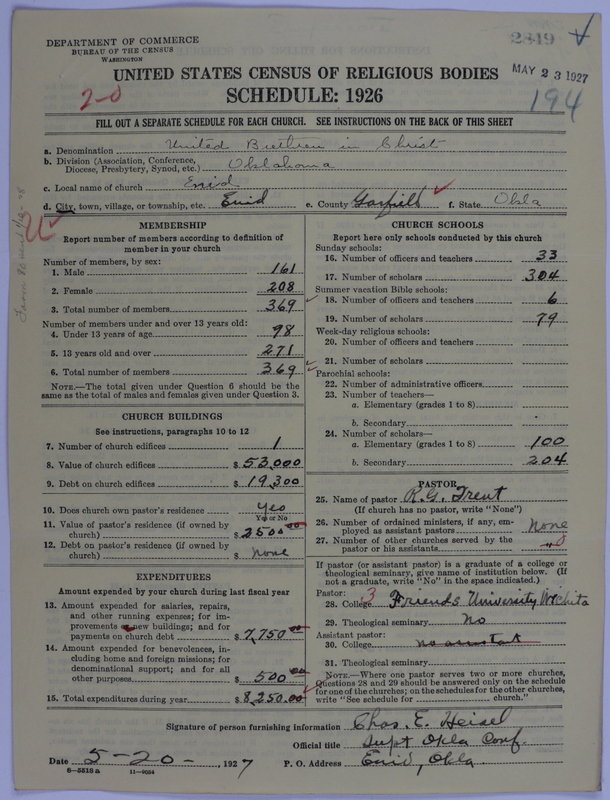 DEPARTMENT OF COMMERCE
BUREAU OF THE CENSUS
WASHINGTON
2849
MAY 23 1927
194
UNITED STATES CENSUS OF RELIGIOUS BODIES
SCHEDULE: 1926
2-0
FILL OUT A SEPARATE SCHEDULE FOR EACH CHURCH. SEE INSTRUCTIONS ON THE BACK OF THIS SHEET
a. Denomination United Brethren in Christ
b. Division (Association, Conference, Diocese, Presbytery, Synod, etc.) Oklahoma
c. Local name of church Enid
d. City, town, village, or township, etc. Enid e. County Garfield f. State Okla
MEMBERSHIP
Report number of members according to definition of member in your church
Number of members, by sex:
1. Male 161
2. Female 208
3. Total number of members 369
Number of members under and over 13 years old:
4. Under 13 years of age 98
5. 13 years old and over 271
6. Total number of members 369
NOTE.—The total given under Question 6 should be the same as the total of males and females given under Question 3.
CHURCH BUILDINGS
See instructions, paragraphs 10 to 12
7. Number of church edifices 1
8. Value of church edifices $ 53,000
9. Debt on church edifices $ 19,300
10. Does church own pastor's residence Yes
Yes or No
11. Value of pastor's residence (if owned by church) $ 2500 00
12. Debt on pastor's residence (if owned by church) $ none
EXPENDITURES
Amount expended by your church during last fiscal year
13. Amount expended for salaries, repairs, and other running expenses; for improvements or new buildings; and for payments on church debt $ 7,750 00
14. Amount expended for benevolences, including home and foreign missions; for denominational support; and for all other purposes $ 500 00
15. Total expenditures during year $ 8,250.00
CHURCH SCHOOLS
Report here only schools conducted by this church
Sunday schools:
16. Number of officers and teachers 33
17. Number of scholars 304
Summer vacation Bible schools:
18. Number of officers and teachers 6
19. Number of scholars 79
Week-day religious schools:
20. Number of officers and teachers
21. Number of scholars
Parochial schools:
22. Number of administrative officers
23. Number of teachers—
a. Elementary (grades 1 to 8)
b. Secondary
24. Number of scholars—
a. Elementary (grades 1 to 8) 100
b. Secondary 204
PASTOR
25. Name of pastor R.G. Trent
(If church has no pastor, write "None")
26. Number of ordained ministers, if any, employed as assistant pastors None
27. Number of other churches served by the pastor or his assistants " 0
If pastor (or assistant pastor) is a graduate of a college or theological seminary, give name of institution below. (If not a graduate, write "No" in the space indicated.)
Pastor:
28. College 3 Friends University Wichita
29. Theological seminary No
Assistant pastor:
30. College no assistant
31. Theological seminary
NOTE.—Where one pastor serves two or more churches, Questions 28 and 29 should be answered only on the schedule for one of the churches; on the schedules for the other churches, write "See schedule for church."
Signature of person furnishing information Chas. E. Heisel
Official title Supt Okla Conf.
Date 5-20-, 1927 P. O. Address Enid, Okla
8—5518 a 11—9034